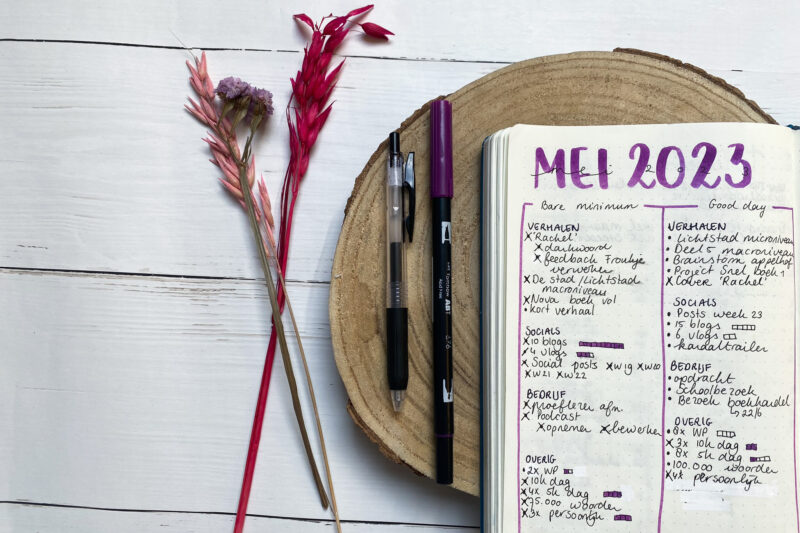 MEI 2023
mei 2023
Bare minimum
VERHALEN
x 'Rachel'
x darkwoord
x feedback Froukje
verwerken
x De stad / Lichtstad
macroniveau
x Nova boek vol
• kort verhaal
SOCIALS
x 10 blogs
x 4 vlogs
x Social posts x w19 x w20
x w21 x w22
BEDRIJF
x proeflezen afm.
x Podcast
x opnemen x bewerken
OVERIG
• 2x WP
x 10k dag
x 4x 5k dag
x 75.000 woorden
x 3x persoonlijk
Good day
VERHALEN
• Lichtstad microniveau
• Deel 5 macroniveau
• Brainstorm appelhof
• Project Snel boek 1
x Cover 'Rachel'
SOCIALS
• Posts week 23
• 15 blogs
• 6 vlogs
• kardaltrailer
BEDRIJF
• opdracht
• Schoolbezoek
• Bezoek boekhandel
↳ 22/6
OVERIG
• 8x WP
x 3x 10k dag
• 8x 5k dag
• 100.000 woorden
x 4x persoonlijk
Tombow ABT
676